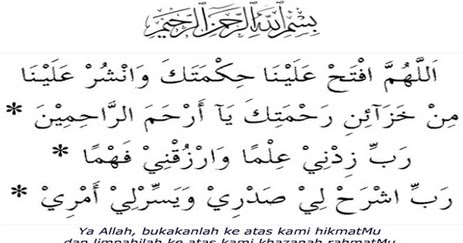 بِسْمِ اللَّهِ الرَّحْمَٰنِ الرَّحِيمِ
اَللَّهُمَّ افْتَحْ عَلَيْنَا حِكْمَتَكَ وَانْشُرْ عَلَيْنَا
مِنْ خَزَآئِنِ رَحْمَتِكَ يَآ أَرْحَمَ الرَّاحِمِيْنَ *
رَبِّ زِدْنِيْ عِلْمًا وَارْزُقْنِيْ فَهْمًا *
رَبِّ اشْرَحْ لِيْ صَدْرِيْ وَيَسِّرْلِيْ أَمْرِيْ *
Ya Allah, bukakanlah ke atas kami hikmatMu
dan limpahilah ke atas kami khazanah rahmatMu